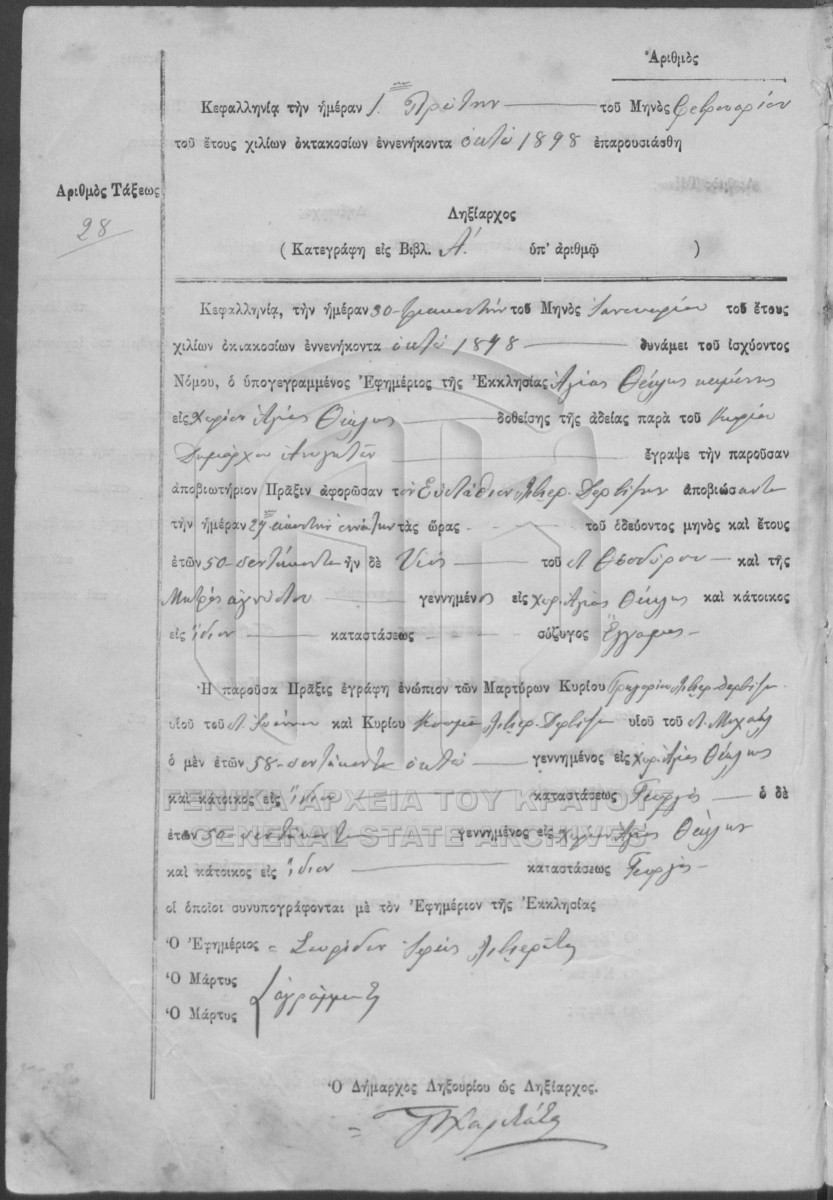 Ἀριθμὸς
Κεφαλληνίᾳ τὴν ἡμέραν 1. Πρώτην τοῦ Μηνὸς Φεβρουαρίου
τοῦ ἔτους χιλίων ὀκτακοσίων ἐννενήκοντα ὀκτὼ 1898 ἐπαρουσιάσθη
Ἀριθμὸς Τάξεως
28
Ληξίαρχος
( Κατεγράφη εἰς Βιβλ. Α΄. ὑπ' ἀριθμῷ )
Κεφαλληνίᾳ, τὴν ἡμέραν 30 τριακοστὴν τοῦ Μηνὸς Ἰανουαρίου τοῦ ἔτους
χιλίων ὀκτακοσίων ἐννενήκοντα ὀκτὼ 1898 δυνάμει τοῦ ἰσχύοντος
Νόμου, ὁ ὑπογεγραμμένος Ἐφημέριος τῆς Ἐκκλησίας Ἁγίας Θέκλης κειμένης
εἰς Χωρίον Ἁγίας Θέκλης δοθείσης τῆς ἀδείας παρὰ τοῦ Κυρίου
Δημάρχου Ἀνωγατῶν ἔγραψε τὴν παροῦσαν
ἀποβιωτήριον Πρᾶξιν ἀφορῶσαν τὸν Εὐστάθιον ἀποβιώσαντα
τὴν ἡμέραν 29 εἰκοστὴν ἐννάτην τὰς ὥρας τοῦ ὁδεύοντος μηνὸς καὶ ἔτους
ἐτῶν 50 πεντήκοντα ἦν δὲ Υἱὸς τοῦ π. Θεοδώρου καὶ τῆς
Μητρὸς ἀγνώστου γεννημένος εἰς χωρ. Ἁγίας Θέκλης καὶ κάτοικος
εἰς ἴδιον καταστάσεως σύζυγος Ἔγγαμος
Ἡ παροῦσα Πρᾶξις ἐγράφη ἐνώπιον τῶν Μαρτύρων Κυρίου Γρηγορίου
υἱοῦ τοῦ π. Ἰωάννου καὶ Κυρίου Κοσμᾶ υἱοῦ τοῦ π. Μιχαὴλ
ὁ μὲν ἐτῶν 58 πεντήκοντα ὀκτὼ γεννημένος εἰς χωρ. Ἁγίας Θέκλης
καὶ κάτοικος εἰς ἴδιον καταστάσεως Γεωργὸς ὁ δὲ
ΓΕΝΙΚΑ ΑΡΧΕΙΑ ΤΟΥ ΚΡΑΤΟΥΣ
ἐτῶν 50 πεντήκοντα γεννημένος εἰς χωρίον Ἁγίας Θέκλης
GENERAL STATE ARCHIVES
καὶ κάτοικος εἰς ἴδιον καταστάσεως Γεωργὸς
οἱ ὁποῖοι συνυπογράφονται μὲ τὸν Ἐφημέριον τῆς Ἐκκλησίας
Ὁ Ἐφημέριος = Σπυρίδων Ἱερεὺς
Ὁ Μάρτυς
ἀγράμματοι
Ὁ Μάρτυς
Ὁ Δήμαρχος Ληξουρίου ὡς Ληξίαρχος.